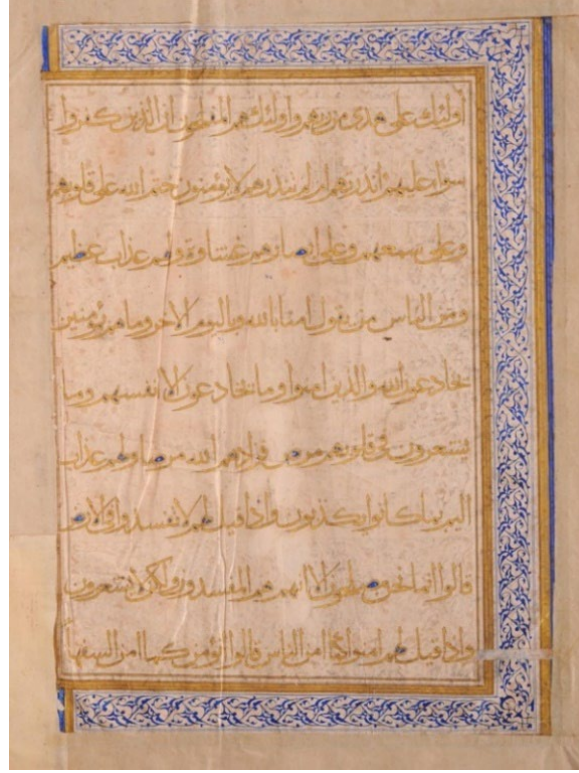 اولئك على هدى من ربهم واولئك هم المفلحون ان الذين كفروا
سواء عليهم أنذرتهم ام لم تنذرهم لا يؤمنون ختم الله على قلوبهم
وعلى سمعهم وعلى ابصارهم غشاوة ولهم عذاب عظيم
ومن الناس من يقول امنا بالله وباليوم الاخر وما هم بمؤمنين
يخادعون الله والذين امنوا وما يخادعون الا انفسهم وما
يشعرون في قلوبهم مرض فزادهم الله مرضا ولهم عذاب
اليم بما كانوا يكذبون واذا قيل لهم لا تفسدوا في الارض
قالوا انما نحن مصلحون الا انهم هم المفسدون ولكن لا يشعرون
واذا قيل لهم امنوا كما امن الناس قالوا انؤمن كما امن السفهاء